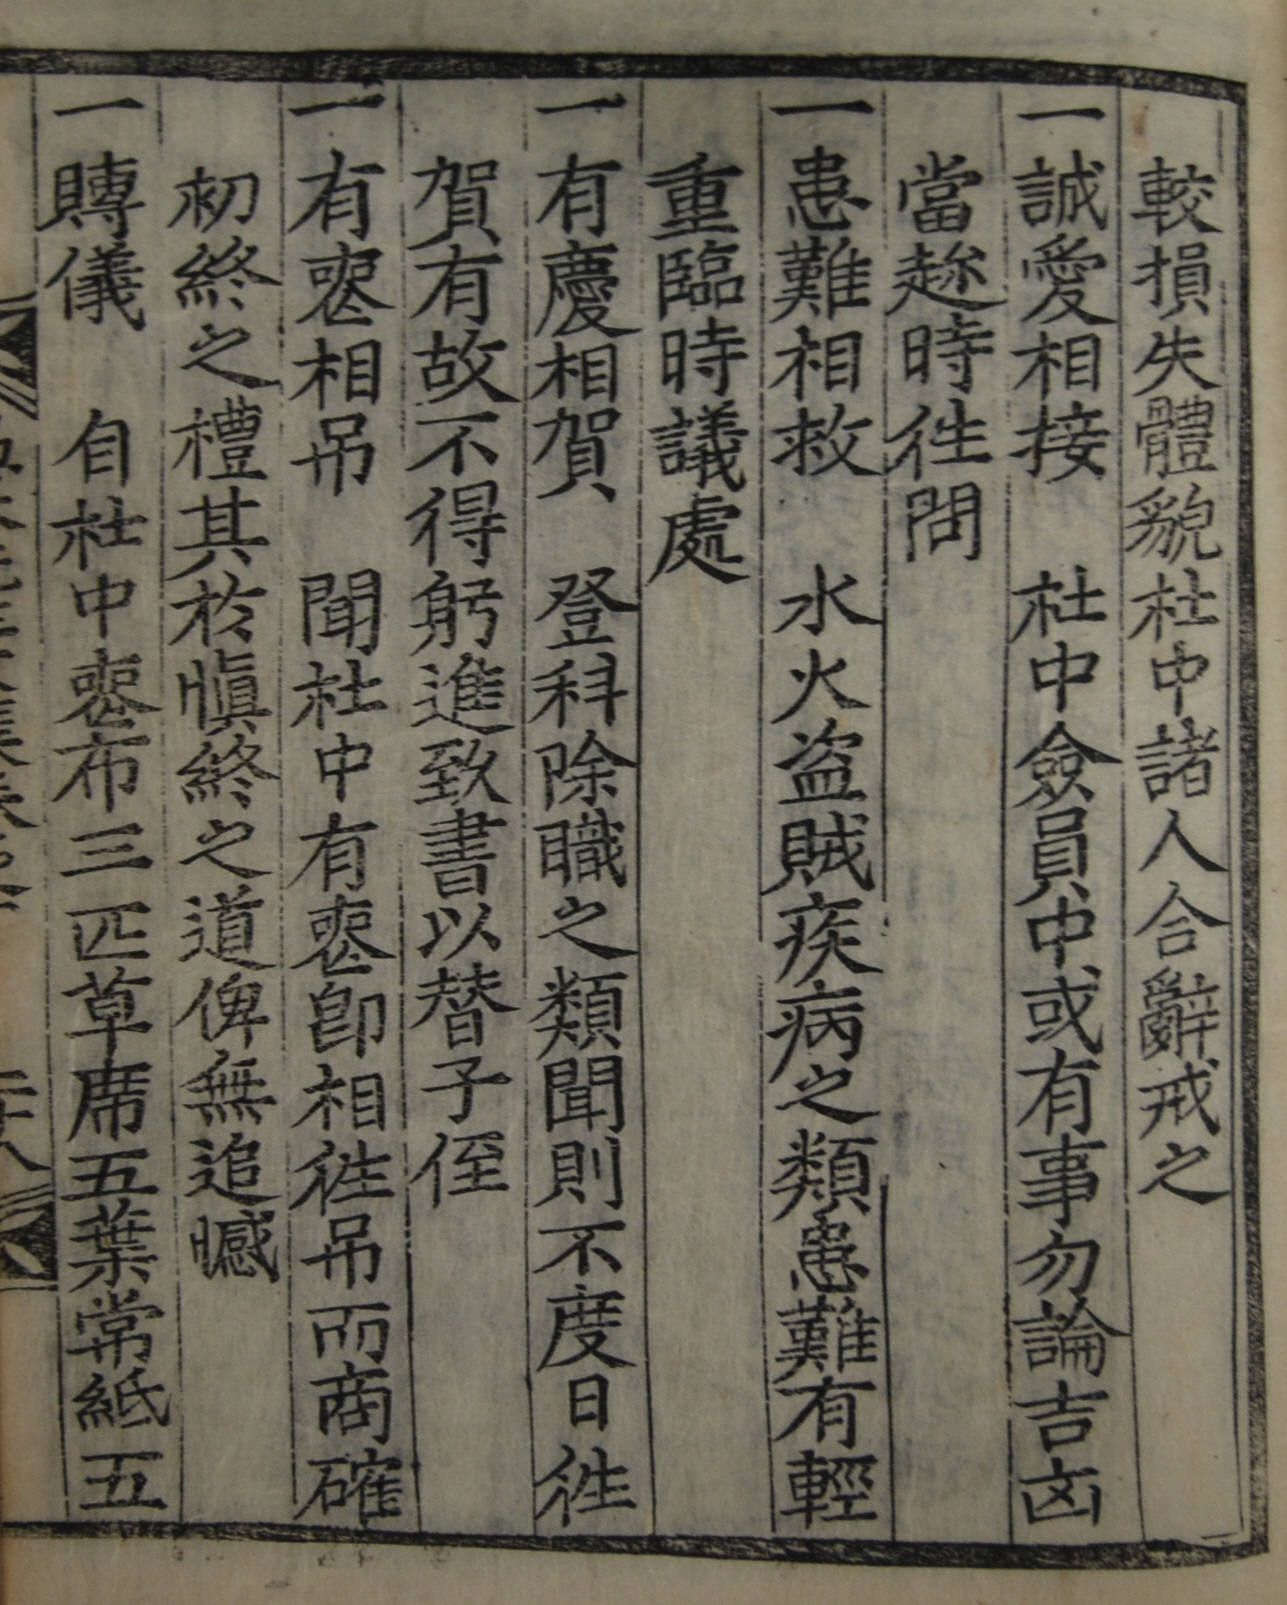 較損失體貌社中諸人合辭戒之
一誠愛相接　社中僉員中或有事勿論吉凶
當趂時徃問
一患難相救　水火盜賊疾病之類患難有輕
重臨時議處
一有慶相賀　登科除職之類聞則不度日徃
賀有故不得躬進致書以替子侄
一有喪相吊　聞社中有喪卽相徃吊而商確
初終之禮其於愼終之道俾無追憾
一賻儀　自社中喪布三匹草席五葉常紙五